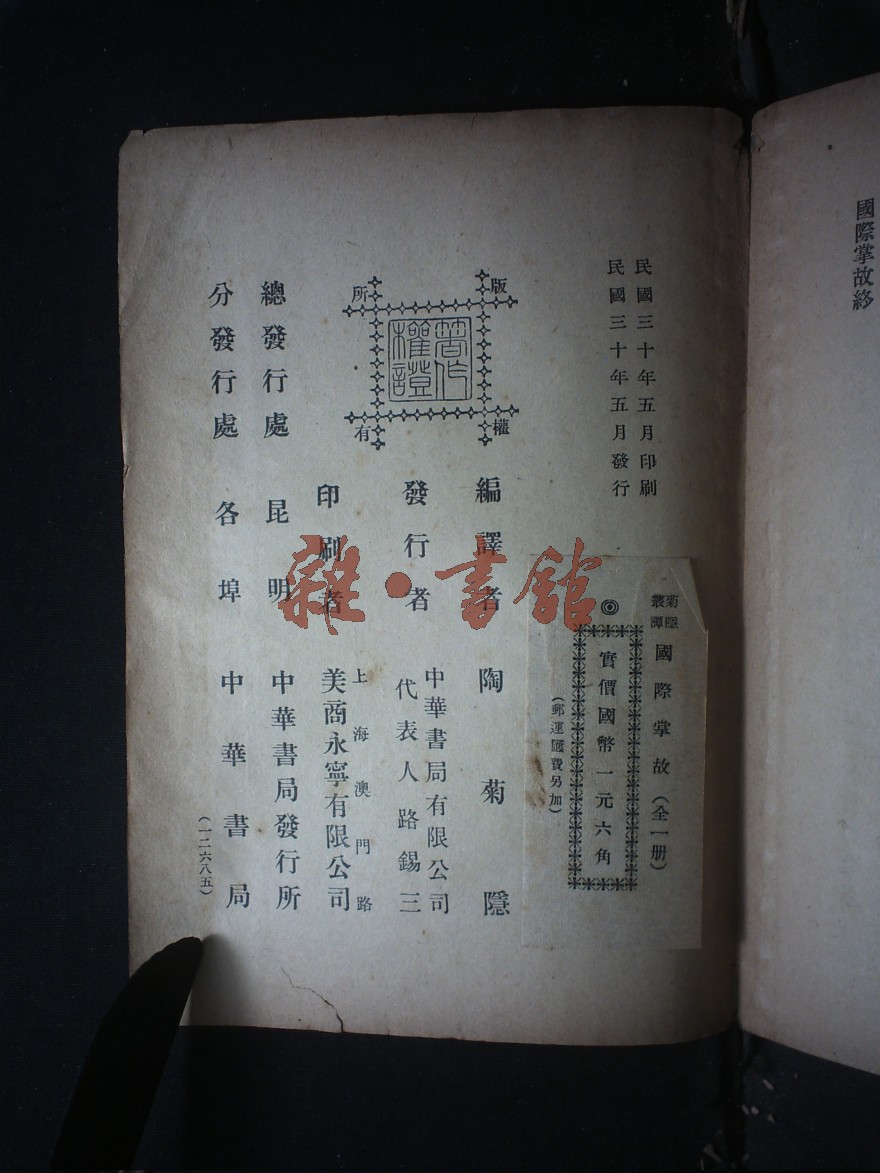 國際掌故終
民國三十年五月印刷
民國三十年五月發行
菊隱叢譚
國際掌故(全一册)
◎
實價國幣一元六角
(郵運匯費另加)
版權所有
著作權證
編譯者 陶菊隱
發行者 中華書局有限公司
代表人路錫三
印刷者 上海澳門路
美商永寧有限公司
總發行處 昆明 中華書局發行所
分發行處 各埠 中華書局
(一二六八五)
雜·書館